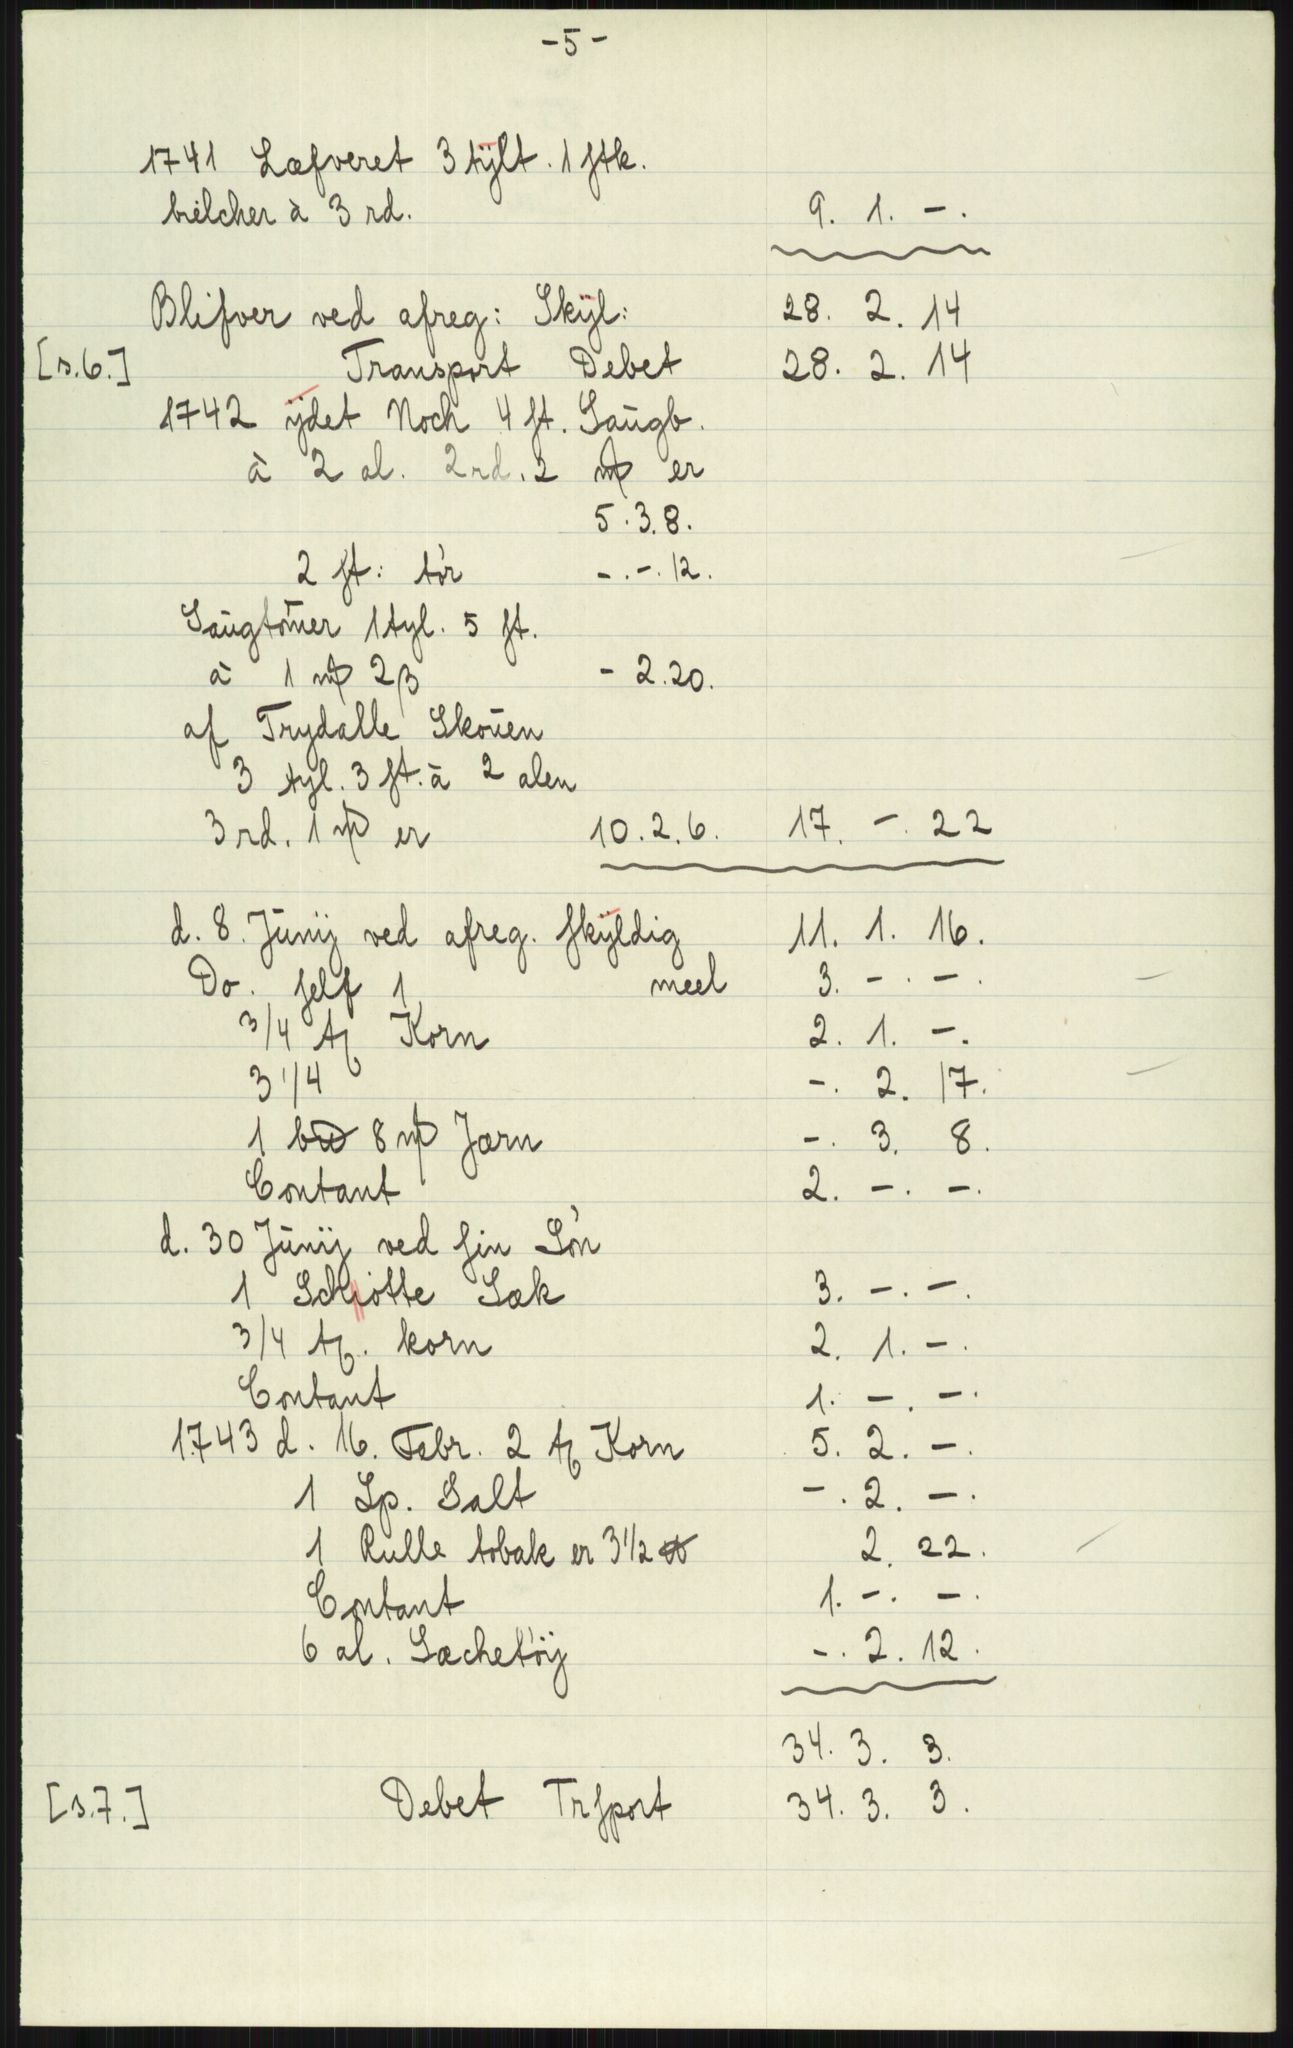 -5-
1741 Læfveret 3 tÿlt. 1 stk.
bielcher à 3 rd. 9. 1. -.
Blifver ved afreg: Skÿl: 28. 2. 14
[s.6.] Transport Debet 28. 2. 14
1742 ÿdet Noch 4 st. Saŭgb.
à 2 al. 2 rd. 2 mk er
5.3.8.
2 st: tór -.-.12.
Saŭgtömer 1 tyl. 5 st.
à 1 mk 2 β - 2.20.
af Trydalle Skoŭen
3 tyl. 3 st. à 2 alen
3 rd. 1 mk er 10.2.6. 17. -. 22
d. 8. Jŭnij ved afreg. skÿldig 11. 1. 16.
Do. self 1 meel 3. -. -.
3/4 tƒ Korn 2. 1. -.
3 1/4 -. 2. 17.
1 8 Jærn -. 3. 8.
Contant 2. -. -.
d. 30 Jŭnij ved sin Són
1 Schiotte Sæk 3. -. -.
3/4 tƒ. korn 2. 1. -.
Contant 1. -. -.
1743 d. 16. Febr. 2 tƒ Korn 5. 2. -.
1 Lp. Salt -. 2. -.
1 Rulle tobak er 3 1/2 ℔ 2. 22.
Contant 1. -. -.
6 al. Sæchetóij -. 2. 12.
34. 3. 3.
[s.7.] Debet Trsport 34. 3. 3.